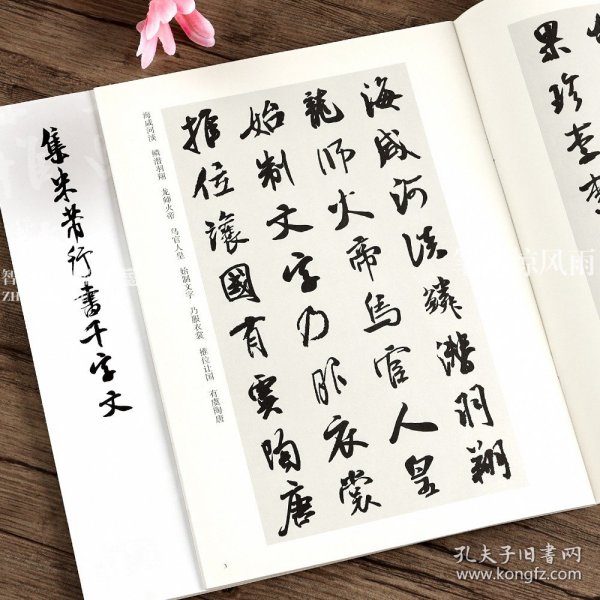 集米芾行書千字文
海咸河淡鱗潛羽翔
龍師火帝鳥官人皇
始制文字乃服衣裳
推位讓國有虞陶唐
海咸河淡 鳞潜羽翔 龙师火帝 鸟官人皇 始制文字 乃服衣裳 推位让国 有虞陶唐
3
果珍李柰
孔夫子旧书网
www.kongfz.com